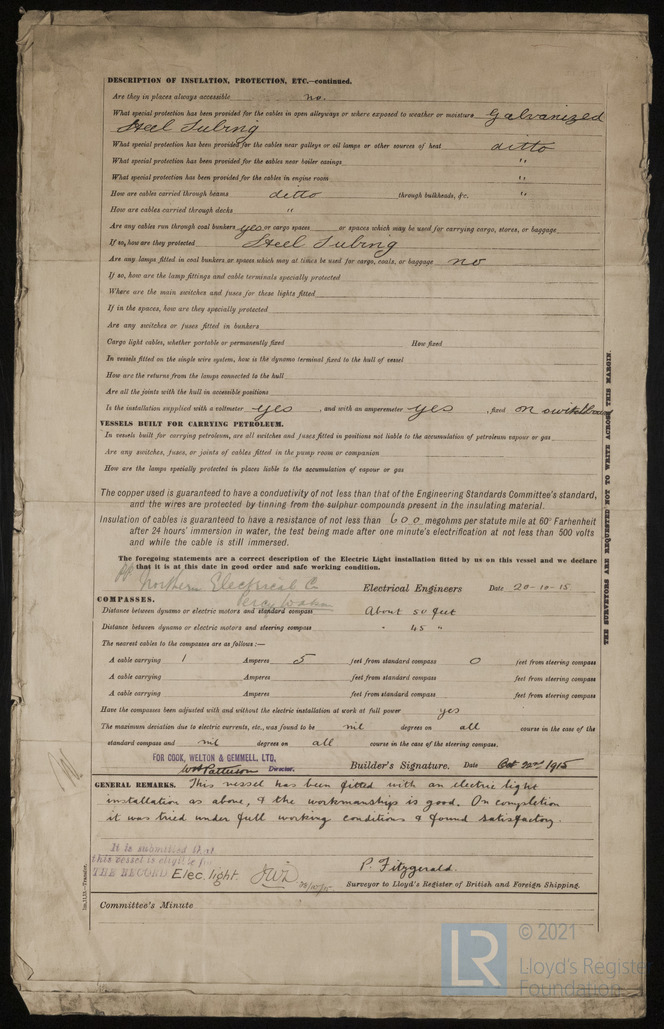 DESCRIPTION OF INSULATION, PROTECTION, ETC.—continued.
Are they in places always accessible no.
What special protection has been provided for the cables in open alleyways or where exposed to weather or moisture Galvanized
Steel Tubing
What special protection has been provided for the cables near galleys or oil lamps or other sources of heat ditto
What special protection has been provided for the cables near boiler casings "
What special protection has been provided for the cables in engine room "
How are cables carried through beams ditto through bulkheads, &c. "
How are cables carried through decks "
Are any cables run through coal bunkers yes or cargo spaces or spaces which may be used for carrying cargo, stores, or baggage
If so, how are they protected Steel Tubing
Are any lamps fitted in coal bunkers or spaces which may at times be used for cargo, coals, or baggage no
If so, how are the lamp fittings and cable terminals specially protected
Where are the main switches and fuses for these lights fitted
If in the spaces, how are they specially protected
Are any switches or fuses fitted in bunkers
Cargo light cables, whether portable or permanently fixed How fixed
In vessels fitted on the single wire system, how is the dynamo terminal fixed to the hull of vessel
How are the returns from the lamps connected to the hull
Are all the joints with the hull in accessible positions
Is the installation supplied with a voltmeter yes , and with an amperemeter yes , fixed on
VESSELS BUILT FOR CARRYING PETROLEUM.
In vessels built for carrying petroleum, are all switches and fuses fitted in positions not liable to the accumulation of petroleum vapour or gas
Are any switches, fuses, or joints of cables fitted in the pump room or companion
How are the lamps specially protected in places liable to the accumulation of vapour or gas
The copper used is guaranteed to have a conductivity of not less than that of the Engineering Standards Committee's standard,
and the wires are protected by tinning from the sulphur compounds present in the insulating material.
Insulation of cables is guaranteed to have a resistance of not less than 600 megohms per statute mile at 60° Farhenheit
after 24 hours' immersion in water, the test being made after one minute's electrification at not less than 500 volts
and while the cable is still immersed.
The foregoing statements are a correct description of the Electric Light installation fitted by us on this vessel and we declare
that it is at this date in good order and safe working condition.
Northern Electrical Co Electrical Engineers Date 20-10-15
COMPASSES.
Distance between dynamo or electric motors and standard compass About 50 feet
Distance between dynamo or electric motors and steering compass " 45 "
The nearest cables to the compasses are as follows:—
A cable carrying 1 Amperes 5 feet from standard compass 0 feet from steering compass
A cable carrying Amperes feet from standard compass feet from steering compass
A cable carrying Amperes feet from standard compass feet from steering compass
Have the compasses been adjusted with and without the electric installation at work at full power yes
The maximum deviation due to electric currents, etc., was found to be nil degrees on all course in the case of the
standard compass and nil degrees on all course in the case of the steering compass.
FOR COOK, WELTON & GEMMELL, LTD.
Wm Patterson Director. Builder's Signature. Date Oct 22nd 1915
GENERAL REMARKS. This vessel has been fitted with an electric light
installation as above, & the workmanship is good. On completion
it was tried under full working conditions & found satisfactory.
It is submitted that
this vessel is eligible for
THE RECORD Elec. light.
P. Fitzgerald.
Surveyor to Lloyd's Register of British and Foreign Shipping.
Committee's Minute
THE SURVEYORS ARE REQUESTED NOT TO WRITE ACROSS THIS MARGIN.
LR © 2021
Lloyd's Register
Foundation